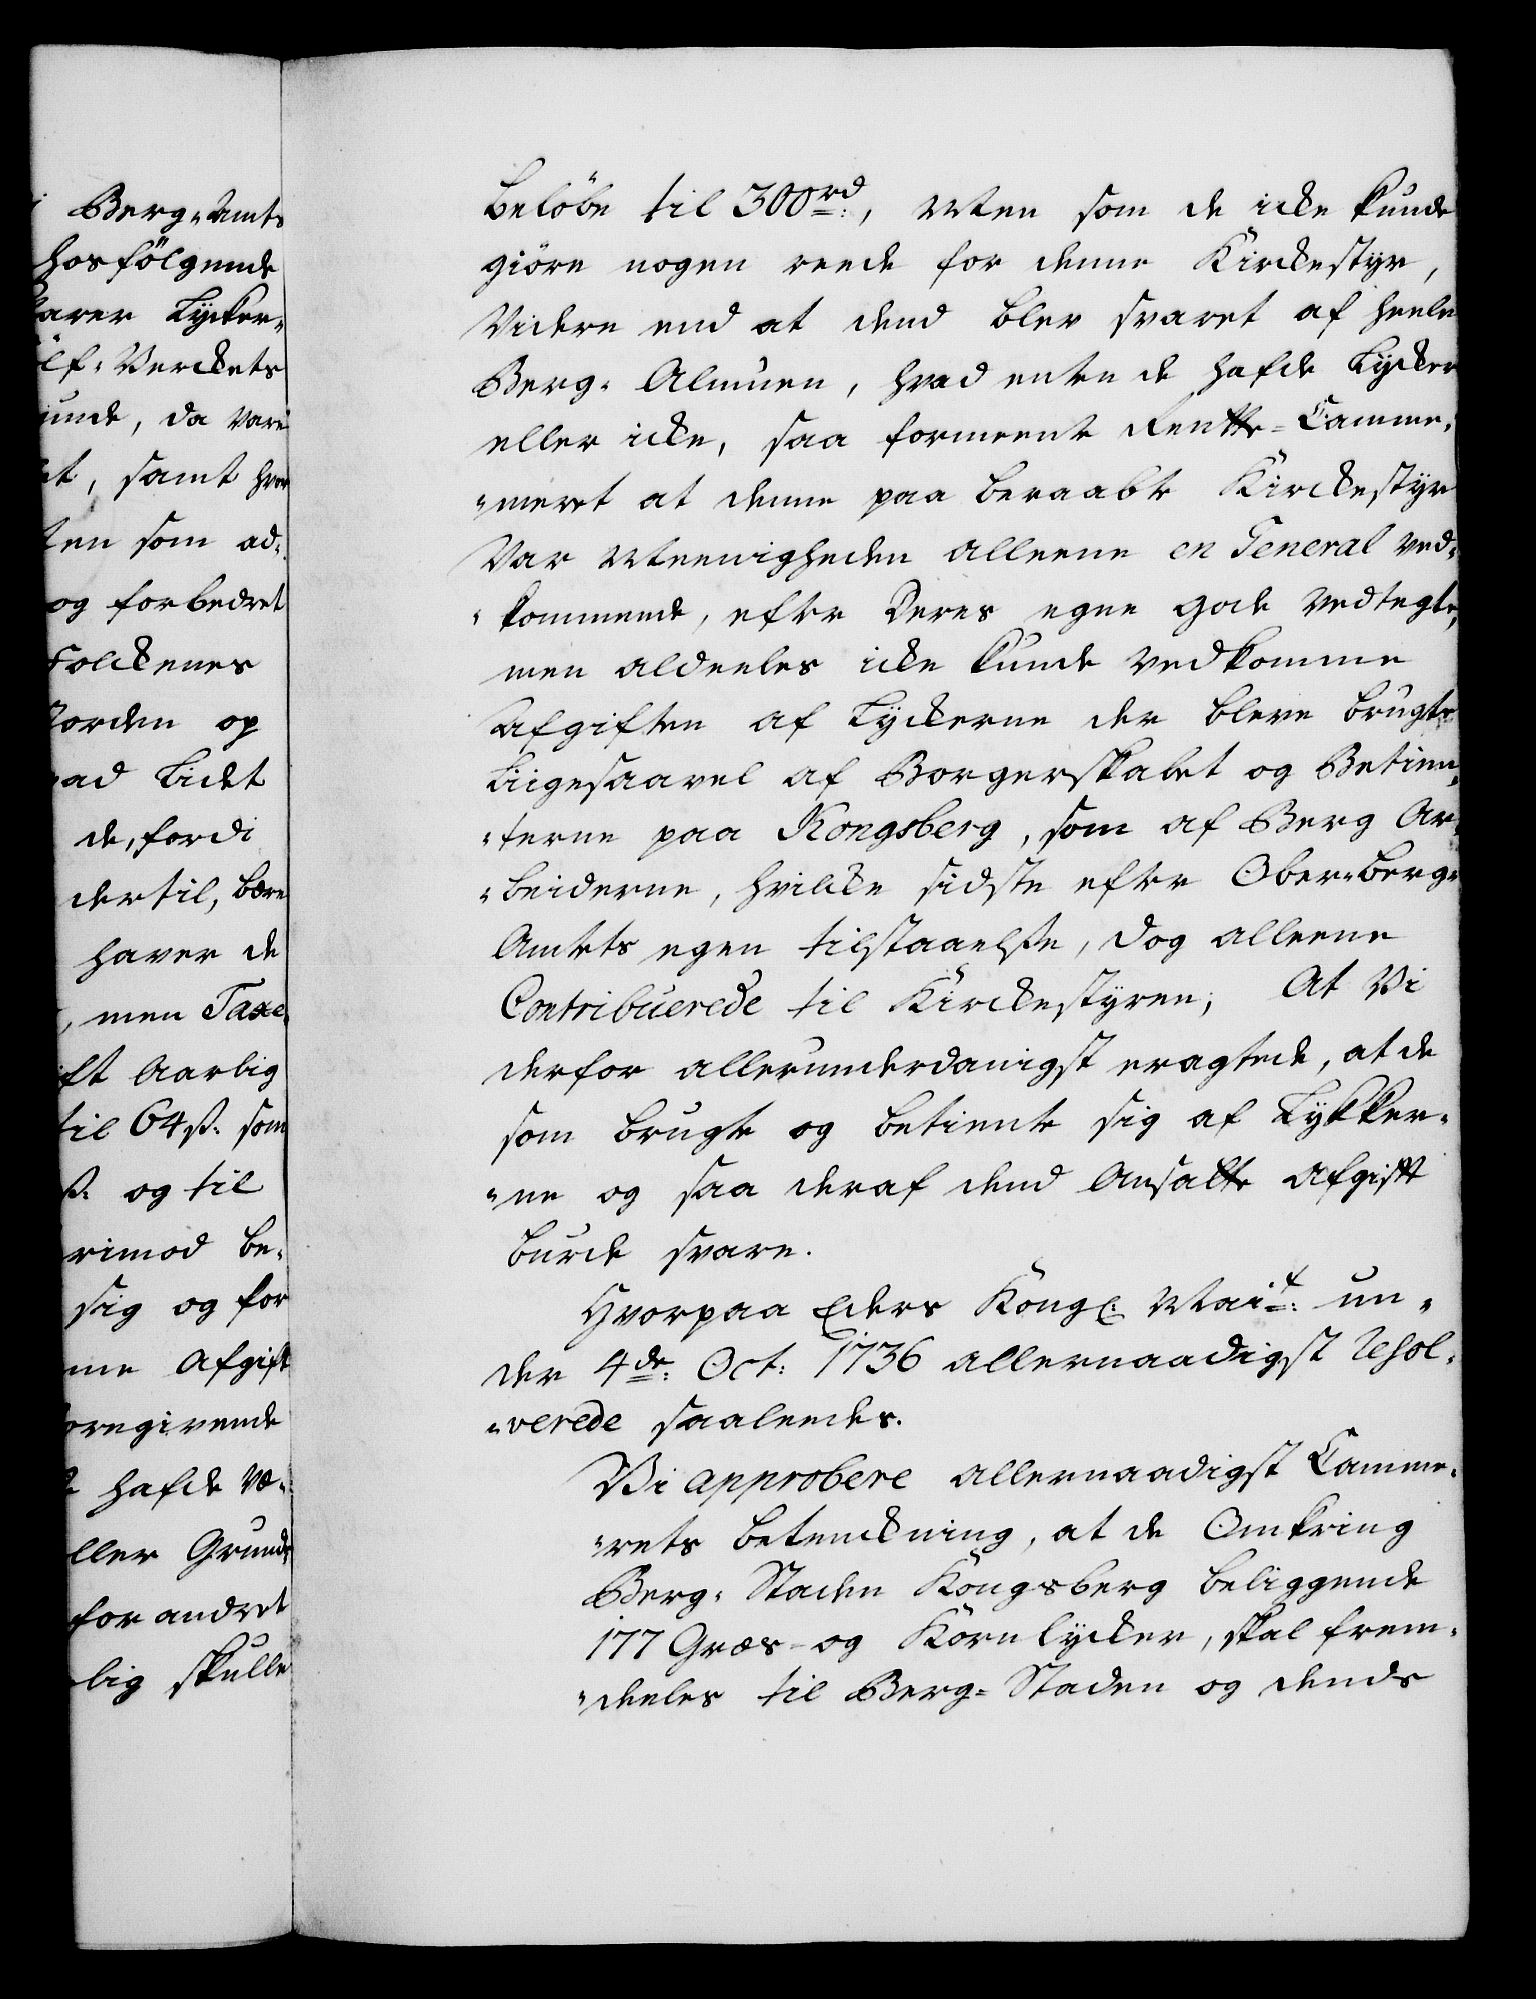 Berg-Amts
hosfölgende
arer Lycker-
Verckets
unde, da vare
et, samt hvor
ten som ad-
og forbedret
Folckenes
Jorden op
ad Lidet
de, fordi
dertil, bære
haver de
, men Taxe-
ft Aarlig
til 64 ß. som
ß. og til
rimod be-
sig og for
me Afgift
oregivende
hafde væ-
ller Grund-
forandret
lig skulle
beløbe til 300 rd:, Men som de icke kunde
giöre nogen reede for denne Kirckestyr,
Videre end at dend blev svaret af heele
Berg-Almuen, hvad enten de hafde Lycker
eller icke, saa formeente Rentte-Camme-
-meret at denne paa beraabte Kirckestyr
Var Meenigheden alleene en General ved-
-kommende, efter Deres egne gode Vedtegt,
men aldeeles icke kunde vedkomme
Afgiften af Lyckerne der bleve brugte
Liigesaavel af Borgerskabet og Betien-
-terne paa Kongsberg, som af Berg Ar-
-beiderne, hvilcke sidste efter Ober-Berg-
Amtets egen tilstaaelse, dog alleene
Contribuerede til Kirckestyren; At Vi
derfor allerunderdanigst eragtede, at de
som brugte og betiente sig af Lykker-
-ne og saa deraf dend Ansatte Afgift
burde svare.
Hvorpaa Eders Kongl. Mait: un-
der 4de: Oct: 1736 allernaadigst resol-
-verede saaleedes.
Vi approbere allernaadigst Camme-
-rets betenckning, at de Omkring
Berg-Staden Kongsberg beliggende
177 Græs- og Kornlycker, skal frem-
-deeles til Berg-Staden og dends